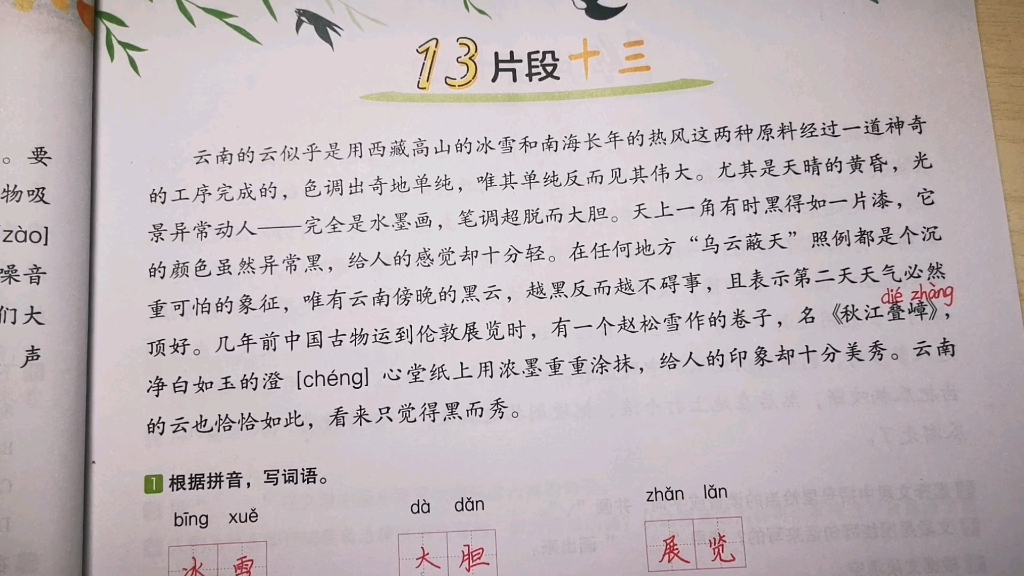 。要
物吸
[zào]
噪音
们大
声
13 片段十三
云南的云似乎是用西藏高山的冰雪和南海长年的热风这两种原料经过一道神奇
的工序完成的，色调出奇地单纯，唯其单纯反而见其伟大。尤其是天晴的黄昏，光
景异常动人——完全是水墨画，笔调超脱而大胆。天上一角有时黑得如一片漆，它
的颜色虽然异常黑，给人的感觉却十分轻。在任何地方“乌云蔽天”照例都是个沉
重可怕的象征，唯有云南傍晚的黑云，越黑反而越不碍事，且表示第二天天气必然
dié zhàng
顶好。几年前中国古物运到伦敦展览时，有一个赵松雪作的卷子，名《秋江叠嶂》，
净白如玉的澄 [chéng] 心堂纸上用浓墨重重涂抹，给人的印象却十分美秀。云南
的云也恰恰如此，看来只觉得黑而秀。
1 根据拼音，写词语。
bīng xuě dà dǎn zhǎn lǎn
冰雪 大胆 展览